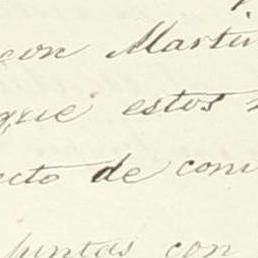 con Martin
que estos
ecto de con
juntas con